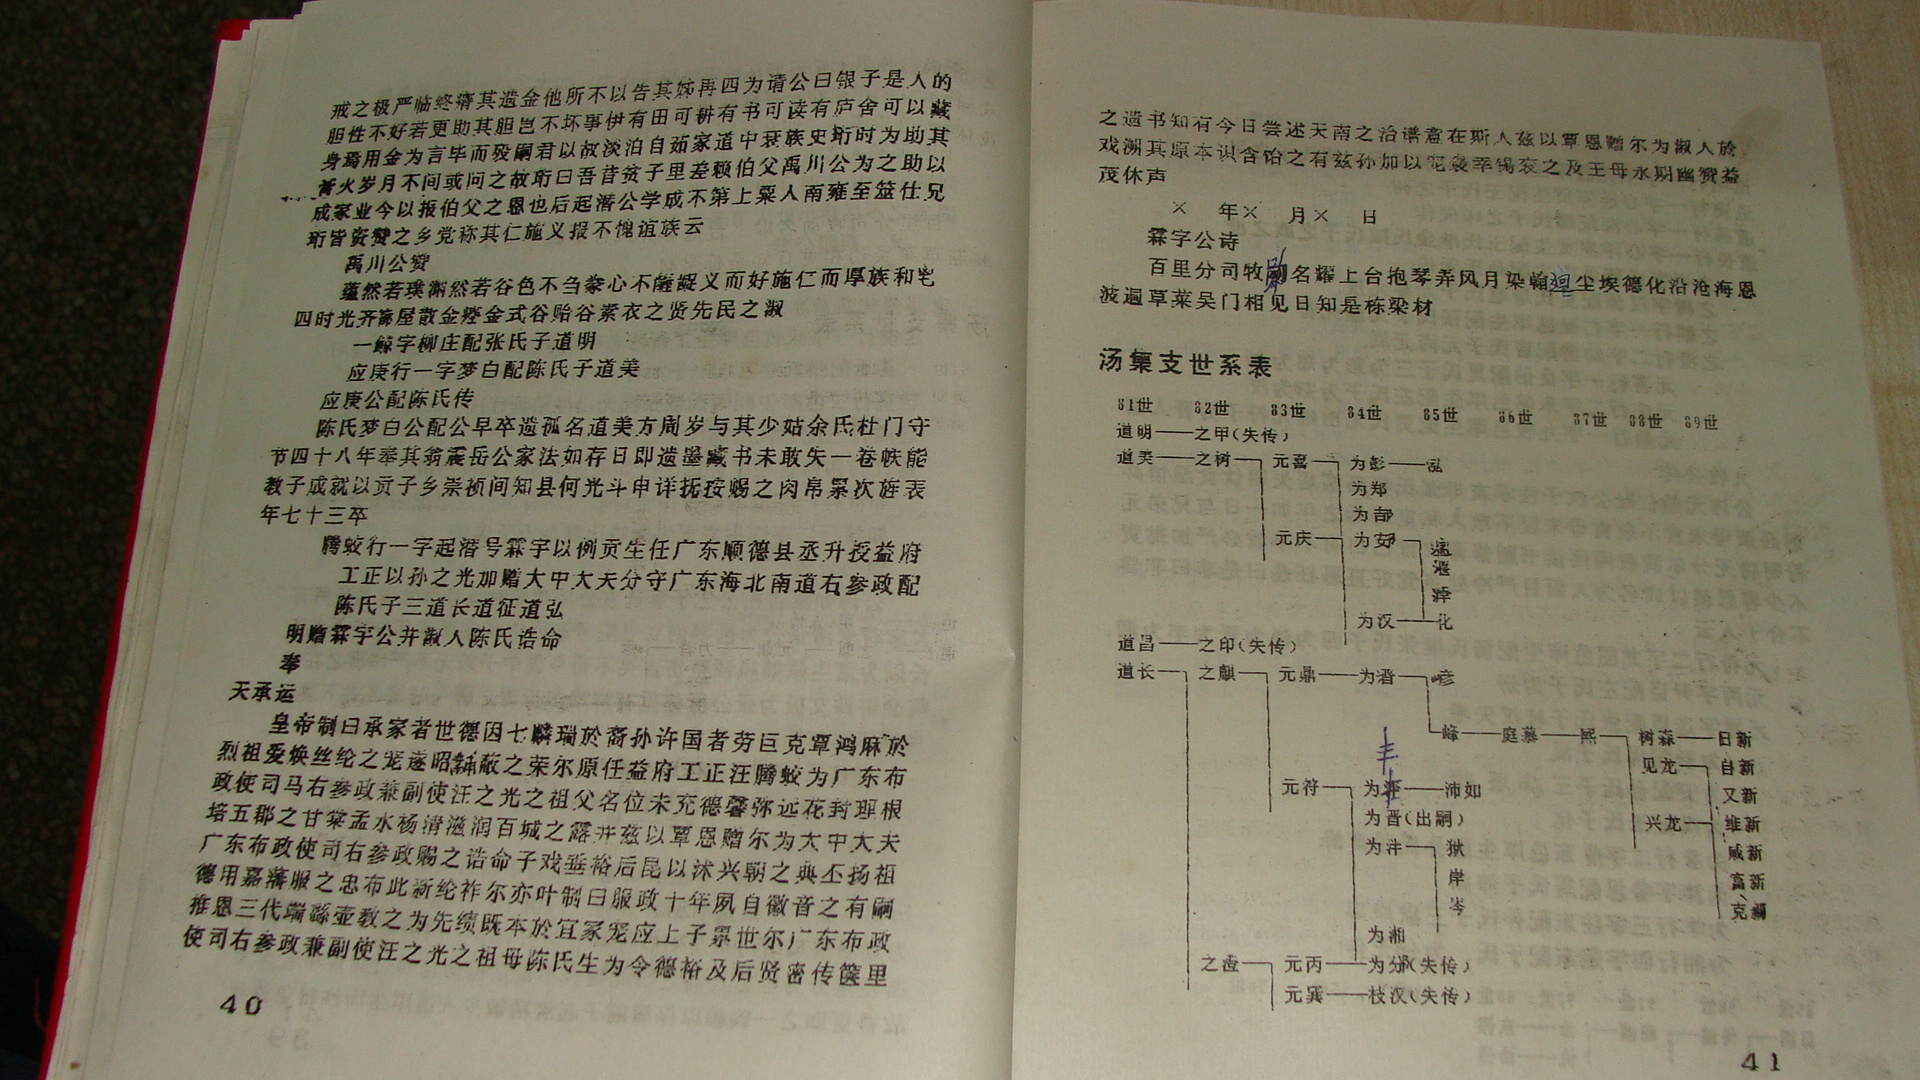 戒之极严临终瘠其遗金他所不以告其姊再四为请公曰银子是人的
胆性不好若更助其胆岂不坏事伊有田可耕有书可读有庐舍可以藏
身焉用金为言毕而殁嗣君以故淡泊自茹家道中衰族史珩时为助其
膏火岁月不间或问之故珩曰吾昔贫子里差赖伯父禹川公为之助以
成家业今以报伯父之恩也后起潜公学成不第上粟入南雍至筮仕兄
珩皆资赞之乡党称其仁施义报不愧谊族云
禹川公赞
蕴然若璞渊然若谷色不刍豢心不 义而好施仁而厚族和宅
四时光齐 屋散金 金式谷贻谷素衣之贤先民之淑
一鲸字柳庄配张氏子道明
应庚行一字梦白配陈氏子道美
应庚公配陈氏传
陈氏梦白公配公早卒遗孤名道美方周岁与其少姑余氏杜门守
节四十八年奉其翁震岳公家法如存日即遗墨藏书未敢失一卷帙能
教子教成就以贡子乡崇祯间知县何光斗申详抚按赐之肉帛累次旌表
年七十三卒
腾蛟行一字起潜号霖宇以例贡生任广东顺德县丞升授益府
工正以孙之光加赠大中大夫分守广东海北南道右参政配
陈氏子三道长道征道弘
明赠霖宇公并淑人陈氏诰命
奉
天承运
皇帝制曰承家者世德因七麟瑞於裔孙许国者劳巨克覃鸿庥於
烈祖爰焕丝纶之宠遂昭 蔽之荣尔原任益府工正汪腾蛟为广东布
政使司马右参政兼副使汪之光之祖父名位未充德馨弥远花封理根
培五郡之甘棠孟水杨清滋润百城之露并兹以覃恩赠尔为大中大夫
广东布政使司右参政赐之诰命子戏垂裕后昆以沭兴朝之典丕扬祖
德用嘉 服之忠布此新纶祚尔亦叶制曰服政十年夙自徽音之有嗣
推恩三代端 壶教之为先绩既本於宜家宠应上子累世尔广东布政
使司右参政兼副使汪之光之祖母陈氏生为令德裕及后贤密传箧里
40
之遗书知有今日尝述天南之治谱意在斯人兹以覃恩赠尔为淑人於
戏溯其原本识含饴之有兹孙加以宠袭幸锡哀之及王母永期幽赞益
茂休声
× 年× 月× 日
霖字公诗
百里分司牧 名耀上台抱琴弄风月染翰迴尘埃德化沿沧海恩
波遍草莱吴门相见日知是栋梁材
汤集支世系表
81世 82世 83世 84世 85世 86世 87世 88世 89世
道明——之甲(失传)
道美——之树 元喜 为彭——泓
为郑
为郆
元庆 为安 瀛
为汉——化
道昌——之印(失传)
道长 之麒 元鼎——为晋 嶜
峰——庭慕——熙 树森——日新
见龙 自新
元符 为 ——沛如 又新
为晋(出嗣) 兴龙 维新
为沣 狱 咸新
岸 富新
岑 克新
为湘
之 元丙——为分(失传)
元巽——枝汉(失传)
41